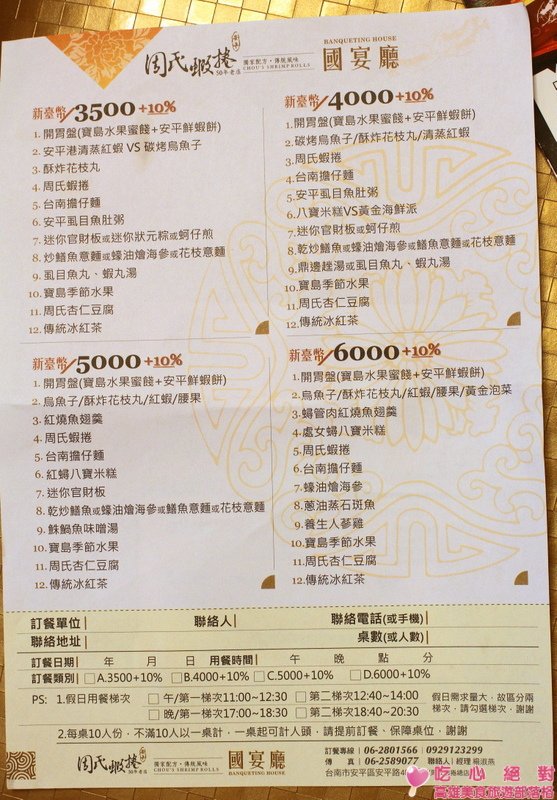 周氏蝦捲
50年老店
獨家配方・傳統風味
CHOU'S SHRIMP ROLLS
BANQUETING HOUSE
國宴廳
新臺幣/3500+10%
1. 開胃盤(寶島水果蜜餞+安平鮮蝦餅)
2. 安平港清蒸紅蝦 VS 碳烤烏魚子
3. 酥炸花枝丸
4. 周氏蝦捲
5. 台南擔仔麵
6. 安平虱目魚肚粥
7. 迷你官財板或迷你狀元粽或蚵仔煎
8. 炒鱔魚意麵或蠔油燴海參或花枝意麵
9. 虱目魚丸、蝦丸湯
10. 寶島季節水果
11. 周氏杏仁豆腐
12. 傳統冰紅茶
新臺幣/4000+10%
1. 開胃盤(寶島水果蜜餞+安平鮮蝦餅)
2. 碳烤烏魚子/酥炸花枝丸/清蒸紅蝦
3. 周氏蝦捲
4. 台南擔仔麵
5. 安平虱目魚肚粥
6. 八寶米糕VS黃金海鮮派
7. 迷你官財板或蚵仔煎
8. 乾炒鱔魚或蠔油燴海參或鱔魚意麵或花枝意麵
9. 鼎邊趖湯或虱目魚丸、蝦丸湯
10. 寶島季節水果
11. 周氏杏仁豆腐
12. 傳統冰紅茶
新臺幣/5000+10%
1. 開胃盤(寶島水果蜜餞+安平鮮蝦餅)
2. 烏魚子/酥炸花枝丸/紅蝦/腰果
3. 紅燒魚翅羹
4. 周氏蝦捲
5. 台南擔仔麵
6. 紅蟳八寶米糕
7. 迷你官財板
8. 乾炒鱔魚或蠔油燴海參或鱔魚意麵或花枝意麵
9. 鮢鍋魚味噌湯
10. 寶島季節水果
11. 周氏杏仁豆腐
12. 傳統冰紅茶
新臺幣/6000+10%
1. 開胃盤(寶島水果蜜餞+安平鮮蝦餅)
2. 烏魚子/酥炸花枝丸/紅蝦/腰果/黃金泡菜
3. 蟳管肉紅燒魚翅羹
4. 處女蟳八寶米糕
5. 周氏蝦捲
6. 台南擔仔麵
7. 蠔油燴海參
8. 蔥油蒸石斑魚
9. 養生人蔘雞
10. 寶島季節水果
11. 周氏杏仁豆腐
12. 傳統冰紅茶
訂餐單位| 聯絡人| 聯絡電話(或手機)|
聯絡地址| 桌數(或人數)|
訂餐日期| 年 月 日 用餐時間| 午 晚 點 分
訂餐類別| □A.3500+10% □B.4000+10% □C.5000+10% □D.6000+10%
PS: 1.假日用餐梯次 □午/第一梯次11:00~12:30 □第二梯次12:40~14:00
□晚/第一梯次17:00~18:30 □第二梯次18:40~20:30
假日需求量大，故區分兩梯次，請勾選梯次，謝謝
2.每桌10人份，不滿10人以一桌計，一桌起可計人頭，請提前訂餐、保障桌位，謝謝
周氏蝦捲
50年老店
獨家配方・傳統風味
CHOU'S SHRIMP ROLLS
BANQUETING HOUSE
國宴廳
訂餐專線 | 06-2801566 | 0929123299
傳 真 | 06-2589077 | 聯絡人 | 經理 楊淑燕
台南市安平區安平路
吃心絕對
高雄美食旅遊部落格